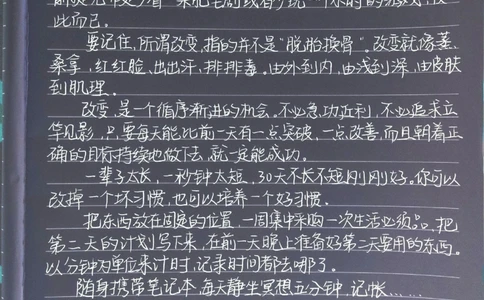 此而已。
要记住,所谓改变,指的并不是“脱胎换骨”。改变就像蒸
桑拿,红红脸、出出汗,排排毒。由外到内,由浅到深,由皮肤
到肌理。
改变,是一个循序渐进的机会。不必急功近利,不必追求立
竿见影,只要每天能比前一天有一点突破,一点改善,而且朝着正
确的目标持续地做下去,就一定能成功。
一辈子太长,一秒钟太短,30天不长不短刚刚好。你可以
改掉一个坏习惯,也可以培养一个好习惯。
把东西放在固定的位置,一周集中采购一次生活必须品,把
第二天的计划写下来,在前一天晚上准备好第二天要用的东西。
以分钟为单位来计时,记录时间都去哪了。
随身携带笔记本,每天静坐冥想五分钟,记帐……